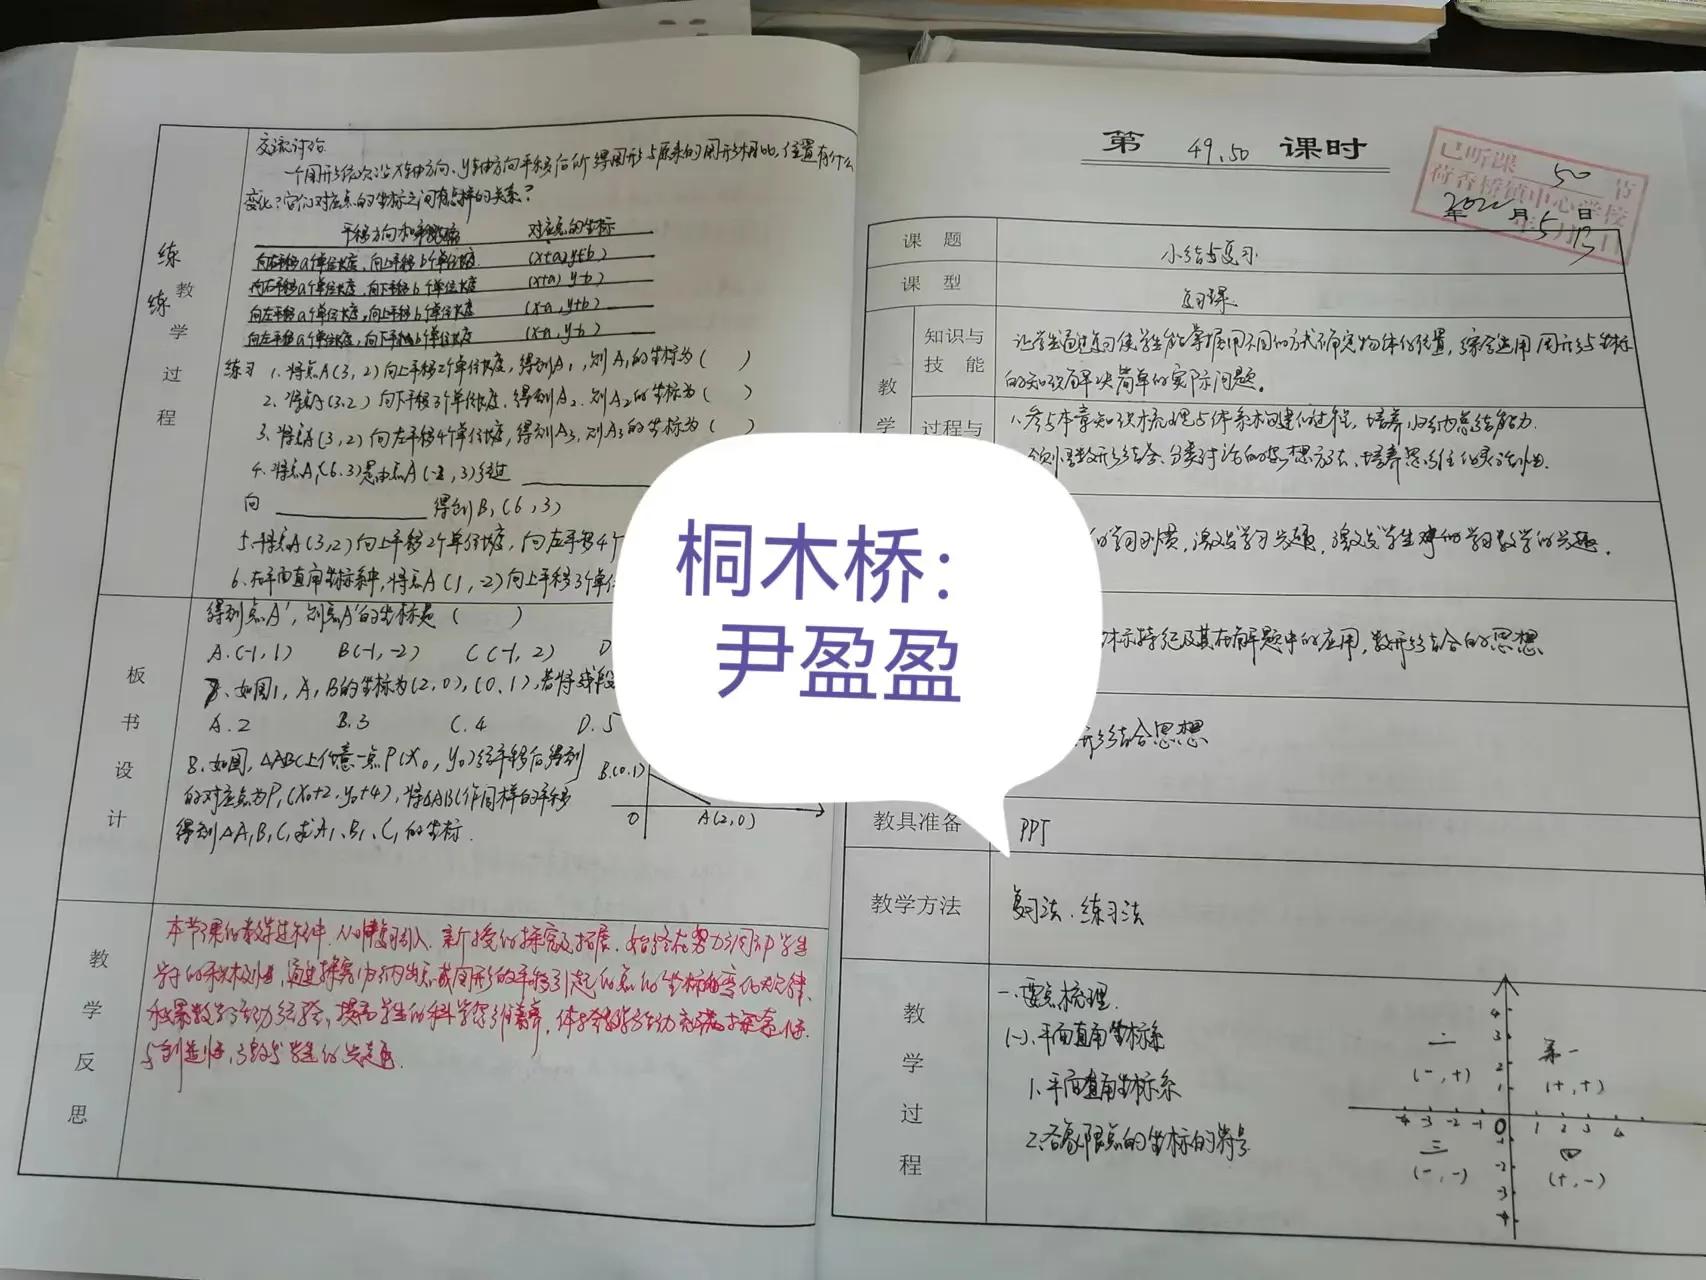 交流讨论
一个图形依次沿x轴方向、y轴方向平移后所得图形与原来的图形相比,位置有什么
变化?它们对应点的坐标之间有怎样的关系?
平移方向和平移距离 对应点的坐标
向右平移a个单位长度,向上平移b个单位长度 (x+a,y+b)
向右平移a个单位长度,向下平移b个单位长度 (x+a,y-b)
向左平移a个单位长度,向上平移b个单位长度 (x-a,y+b)
向左平移a个单位长度,向下平移b个单位长度 (x-a,y-b)
练练
教学过程
练习 1.将点A(3,2)向上平移2个单位长度,得到A₁,则A₁的坐标为( )
2.将点A(3,2)向下平移3个单位长度,得到A₂,则A₂的坐标为( )
3.将点A(3,2)向左平移4个单位长度,得到A₃,则A₃的坐标为( )
4.将点A₁(6,3)是由点A(-2,3)经过
向 得到B₁(6,3)
5.将点A(3,2)向上平移2个单位长度,向左平移4个
6.在平面直角坐标系中,将点A(1,-2)向上平移3个单位
得到点A',则点A'的坐标是( )
A.(-1,1) B(-1,-2) C(-1,2) D
7、如图1,A,B的坐标为(2,0),(0,1),若将线段
A.2 B.3 C.4 D.5
8、如图,△ABC上任意一点P(x₀,y₀)经平移后得到
的对应点为P₁(x₀+2,y₀+4),将△ABC作同样的平移
得到△A₁B₁C₁求A₁、B₁、C₁的坐标.
B(0,1)
O A(2,0)
板书设计
教学反思
本节课的教学进程中,从复习引入、新授的探究及拓展,始终在努力调动学生
学习的积极性,通过探索归纳出点或图形的平移引起的点的坐标的变化规律,
积累数学活动经验,提高学生的科学探究素养,体会数学活动充满探索性
与创造性,激发学生的兴趣.
桐木桥:
尹盈盈
第 49、50 课时
已听课 50 节
荷香桥镇中心学校
2022年5月13日
课题 小结与复习
课型 复习课
知识与技能
让学生通过复习使学生能掌握用不同的方式确定物体的位置,综合运用图形与坐标
的知识解决简单的实际问题。
教学
过程与
1.参与本章知识梳理与体系构建的过程,培养归纳总结能力.
数形结合、分类讨论的思想方法、培养思维的灵活性.
的学习习惯,激发学习兴趣,激发学生学习数学的兴趣.
坐标特征及其在解题中的应用,数形结合的思想
形结合思想
教具准备 PPT
教学方法 复习法、练习法
教学过程
一、要点梳理.
(一)、平面直角坐标系
1.平面直角坐标系
2.各象限点的坐标的符号
4
3
2
1
二 第一
(-,+) (+,+)
-4 -3 -2 -1 0 1 2 3 4
三 四
(-,-) (+,-)
-2
-3
-4